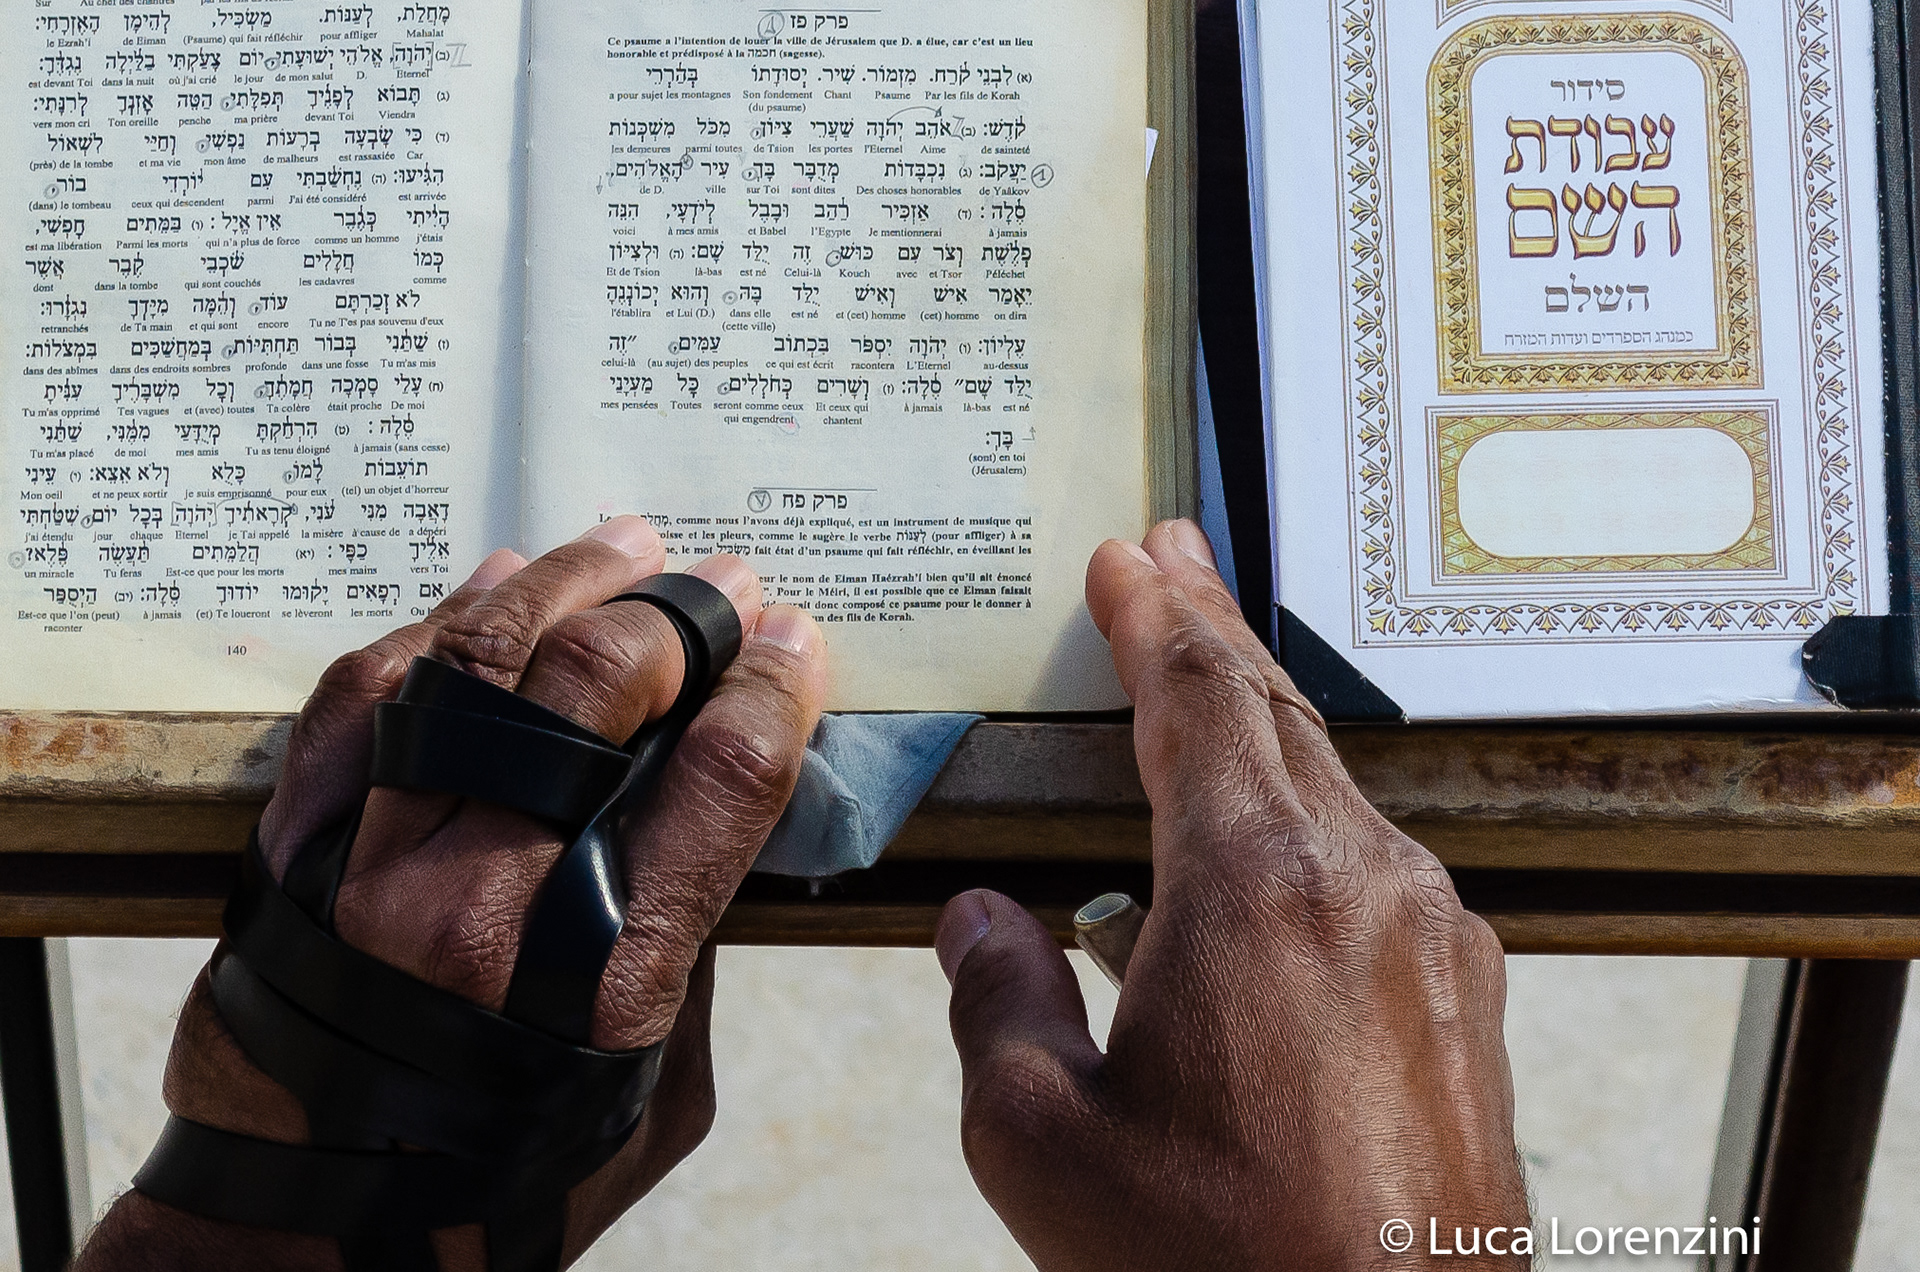 פרק פז
Ce psaume a l'intention de louer la ville de Jérusalem que D. a élue, car c'est un lieu
honorable et prédisposé à la חכמה (sagesse).
(א) לִבְנֵי קֹרַח. מִזְמוֹר. שִׁיר. יְסוּדָתוֹ בְּהַרְרֵי
a pour sujet les montagnes Son fondement Chant Psaume Par les fils de Korah
(du psaume)
קֹדֶשׁ: (ב) אֹהֵב יְהֹוָה שַׁעֲרֵי צִיּוֹן, מִכֹּל מִשְׁכְּנוֹת
les demeures parmi toutes de Tsion les portes l'Eternel Aime de sainteté
יַעֲקֹב: (ג) נִכְבָּדוֹת מְדֻבָּר בָּךְ, עִיר הָאֱלֹהִים,
de D. ville sur Toi sont dites Des choses honorables de Yaâkov
סֶלָה: (ד) אַזְכִּיר רַהַב וּבָבֶל לְיֹדְעָי, הִנֵּה
voici à mes amis et Babel l'Egypte Je mentionnerai à jamais
פְלֶשֶׁת וְצֹר עִם כּוּשׁ, זֶה יֻלַּד שָׁם: (ה) וּלְצִיּוֹן
Et de Tsion là-bas est né Celui-là Kouch avec et Tsor Péléchet
יֵאָמַר אִישׁ וְאִישׁ יֻלַּד בָּהּ, וְהוּא יְכוֹנְנֶהָ
l'établira et Lui (D.) dans elle est né et (cet) homme (cet) homme on dira
(cette ville)
עֶלְיוֹן: (ו) יְהֹוָה יִסְפֹּר בִּכְתוֹב עַמִּים, "זֶה
celui-là (au sujet) des peuples ce qui est écrit racontera L'Eternel au-dessus
יֻלַּד שָׁם" סֶלָה: (ז) וְשָׁרִים כְּחֹלְלִים, כָּל מַעְיָנַי
mes pensées Toutes seront comme ceux Et ceux qui à jamais là-bas est né
qui engendrent chantent
בָּךְ:
(sont) en toi
(Jérusalem)
פרק פח
מָחֲלַת, comme nous l'avons déjà expliqué, est un instrument de musique qui
et les pleurs, comme le sugère le verbe לְעַנּוֹת (pour affliger) à sa
le mot מַשְׂכִּיל fait état d'un psaume qui fait réfléchir, en éveillant les
le nom de Eiman Haézrah'i bien qu'il ait énoncé
Pour le Méiri, il est possible que ce Eiman faisait
donc composé ce psaume pour le donner à
des fils de Korah.
Sur Au chef des chantres par les fils de
מָחֲלַת, לְעַנּוֹת. מַשְׂכִּיל, לְהֵימָן הָאֶזְרָחִי:
le Ezrah'i de Eiman (Psaume) qui fait réfléchir pour affliger Mahalat
(ב) יְהֹוָה, אֱלֹהֵי יְשׁוּעָתִי, יוֹם צָעַקְתִּי בַלַּיְלָה נֶגְדֶּךָ:
est devant Toi dans la nuit où j'ai crié le jour de mon salut D. Eternel
(ג) תָּבוֹא לְפָנֶיךָ תְּפִלָּתִי, הַטֵּה אָזְנְךָ לְרִנָּתִי:
vers mon cri Ton oreille penche ma prière devant Toi Viendra
(ד) כִּי שָׂבְעָה בְרָעוֹת נַפְשִׁי, וְחַיַּי לִשְׁאוֹל
(près) de la tombe et ma vie mon âme de malheurs est rassasiée Car
הִגִּיעוּ: (ה) נֶחְשַׁבְתִּי עִם יוֹרְדֵי בוֹר,
(dans) le tombeau ceux qui descendent parmi J'ai été considéré est arrivée
הָיִיתִי כְּגֶבֶר אֵין אֱיָל: (ו) בַּמֵּתִים חָפְשִׁי,
est ma libération Parmi les morts qui n'a plus de force comme un homme j'étais
כְּמוֹ חֲלָלִים שֹׁכְבֵי קֶבֶר אֲשֶׁר
dont dans la tombe qui sont couchés les cadavres comme
לֹא זְכַרְתָּם עוֹד, וְהֵמָּה מִיָּדְךָ נִגְזָרוּ:
retranchés de Ta main et qui sont encore Tu ne T'es pas souvenu d'eux
(ז) שַׁתַּנִי בְּבוֹר תַּחְתִּיּוֹת, בְּמַחֲשַׁכִּים בִּמְצֹלוֹת:
dans des abîmes dans des endroits sombres profonde dans une fosse Tu m'as mis
(ח) עָלַי סָמְכָה חֲמָתֶךָ, וְכָל מִשְׁבָּרֶיךָ עִנִּיתָ
Tu m'as opprimé Tes vagues et (avec) toutes Ta colère était proche De moi
סֶּלָה: (ט) הִרְחַקְתָּ מְיֻדָּעַי מִמֶּנִּי, שַׁתַּנִי
Tu m'as placé de moi mes amis Tu as tenu éloigné à jamais (sans cesse)
תוֹעֵבוֹת לָמוֹ, כָּלֻא וְלֹא אֵצֵא: (י) עֵינִי
Mon oeil et ne peux sortir je suis emprisonné pour eux (tel) un objet d'horreur
דָאֲבָה מִנִּי עֹנִי, קְרָאתִיךָ יְהֹוָה בְּכָל יוֹם, שִׁטַּחְתִּי
j'ai étendu jour chaque Eternel je T'ai appelé la misère à cause de a dépéri
אֵלֶיךָ כַפָּי: (יא) הֲלַמֵּתִים תַּעֲשֶׂה פֶּלֶא?
un miracle Tu feras Est-ce que pour les morts mes mains vers Toi
אִם רְפָאִים יָקוּמוּ יוֹדוּךָ סֶּלָה: (יב) הַיְסֻפַּר
Est-ce que l'on (peut) à jamais (et) Te loueront se lèveront les morts Ou
raconter
140
סידור
עבודת
השם
השלם
כמנהג הספרדים ועדות המזרח
© Luca Lorenzini